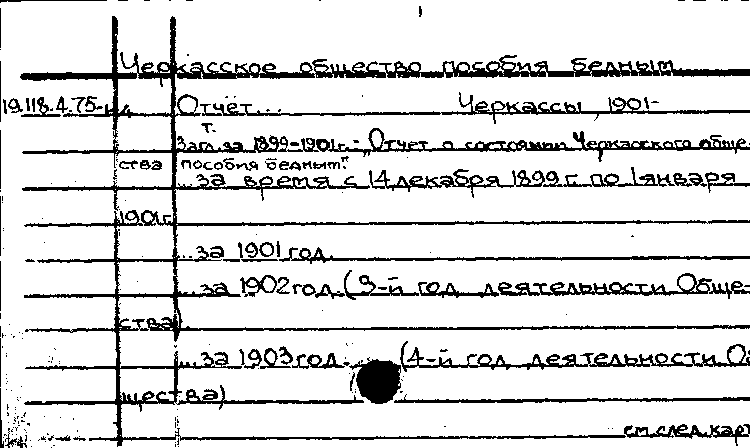 Черкасское общество пособия бедным
19.118.4.75- Отчёт... Черкассы, 1901-
Заг. за 1899-1901г.: „Отчет о состоянии Черкасского обще-
ства пособия бедным".
...за время с 14 декабря 1899 г. по 1 января
1901 г.
...за 1901 год.
...за 1902 год. (3-й год деятельности Обще-
ства).
...за 1903 год. (4-й год деятельности Об
щества)
см. след. карт